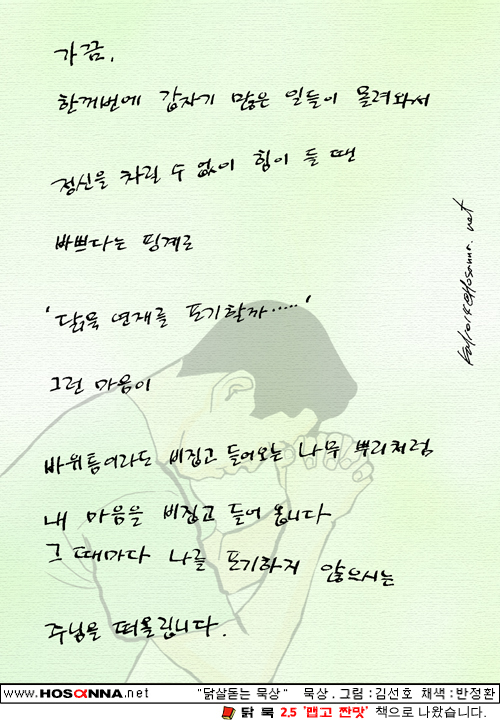 가끔,
한꺼번에 갑자기 많은 일들이 몰려와서
정신을 차릴 수 없이 힘이 들 때
바쁘다는 핑계로
'닭묵 연재를 포기할까.....'
그런 마음이
바위틈이라도 비집고 들어오는 나무 뿌리처럼
내 마음을 비집고 들어 옵니다
그 때마다 나를 포기하지 않으시는
주님을 떠올립니다.
www.HOSANNA.net "닭살돋는 묵상" 묵상.그림:김선호 채색:반정환
닭 묵 2.5 '맵고 짠맛' 책으로 나왔습니다.